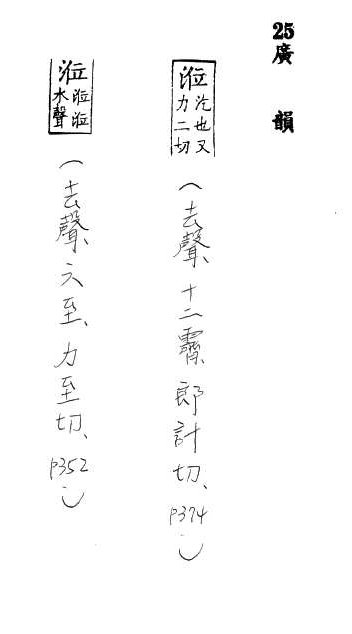 25廣韻
涖 也又力二切
(去聲、十二霽、郎計切、P374)
涖 涖涖水聲
(去聲、六至、力至切、P352)